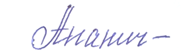 Ананич –